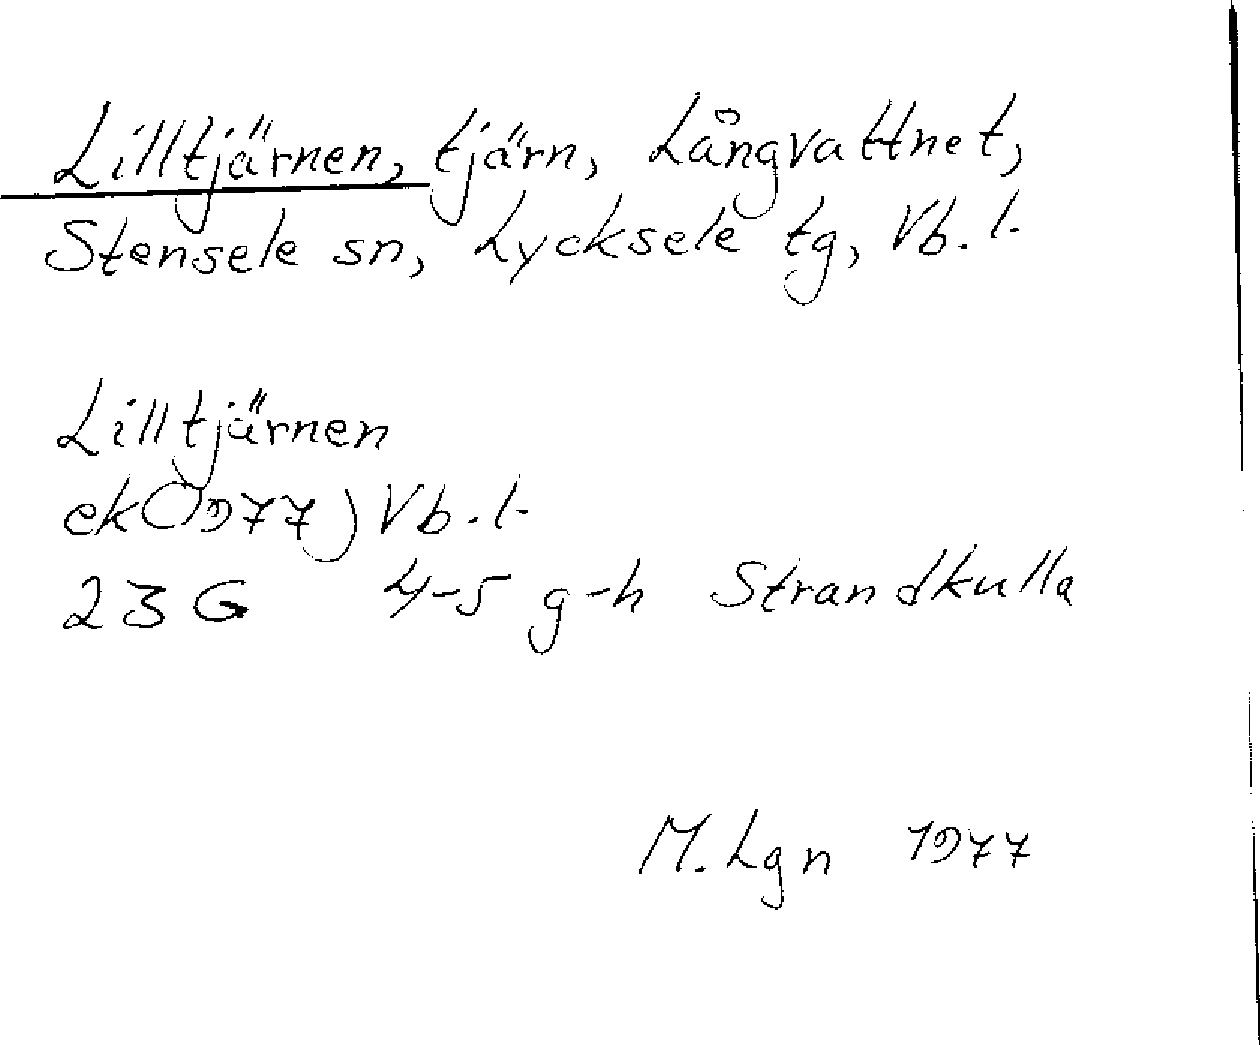 Lilltjärnen, tjärn, Långvattnet,
Stensele sn, Lycksele tg, Vb. l.
Lilltjärnen
ek (1977) Vb. l.
23 G 4-5 g-h Strandkulla
M. Lgn 1977